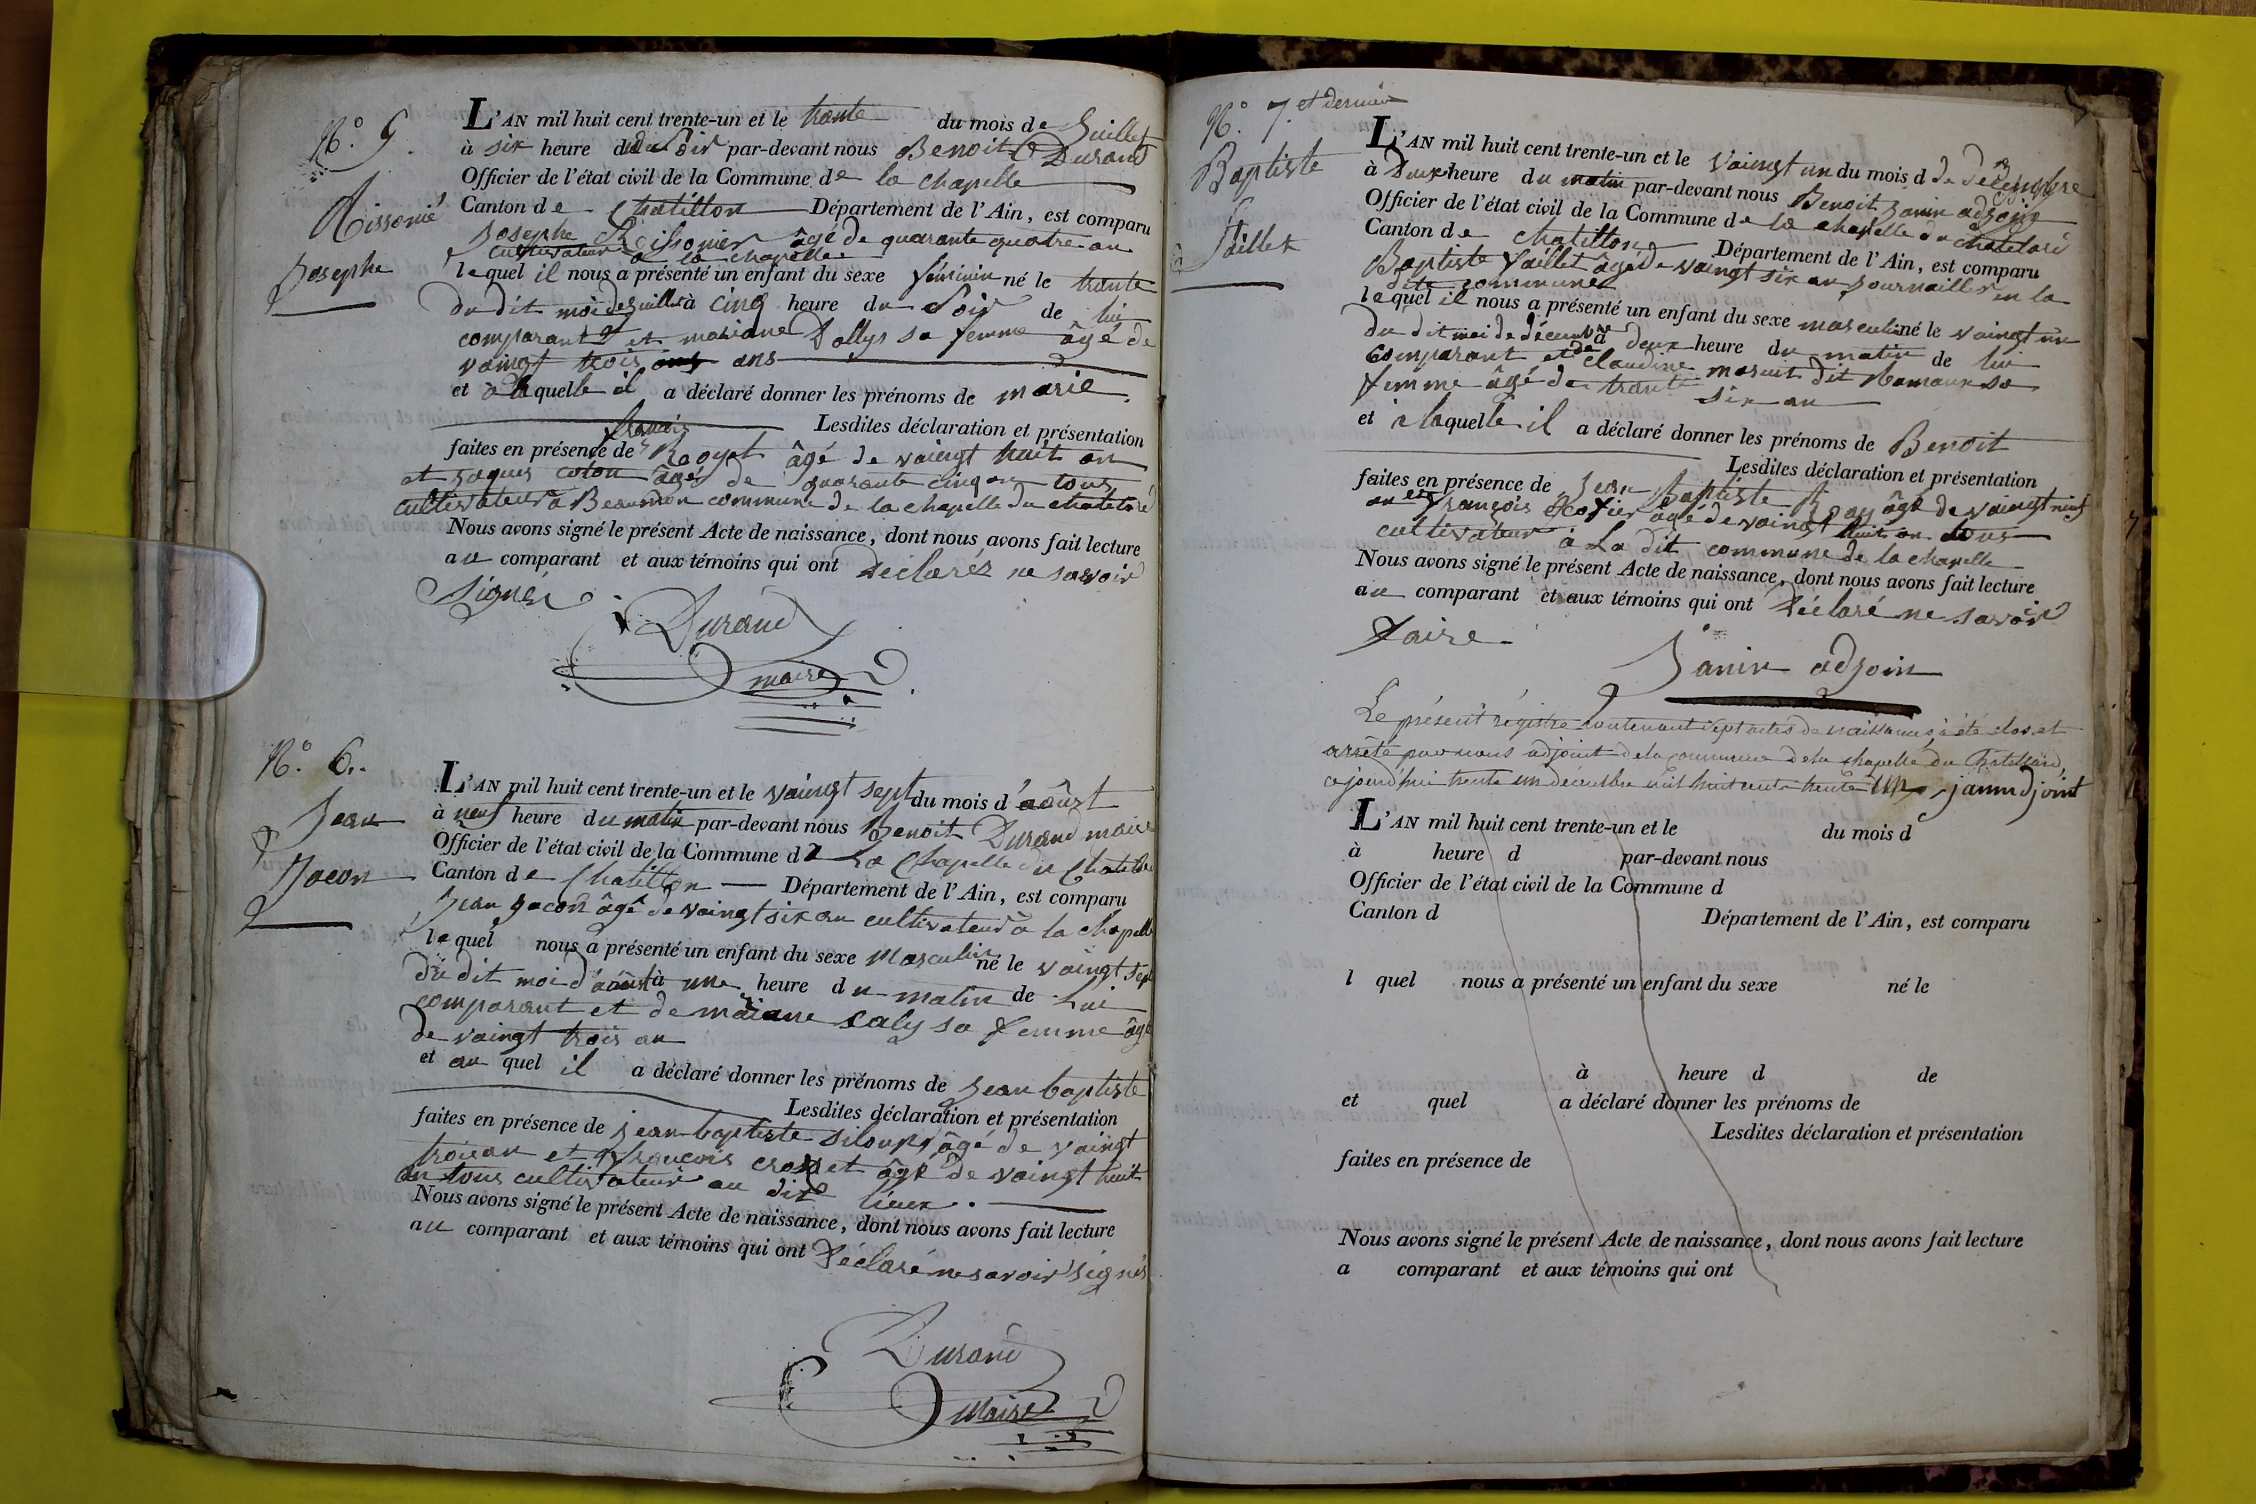 N.° 5.
Rissonié
Josephe
L'AN mil huit cent trente-un et le trante du mois de Juillet
à six heure du Soir par-devant nous Benoit Durand
Officier de l'état civil de la Commune de la chapelle
Canton de Chatillon Département de l'Ain, est comparu
Josephe Rissonier âgé de quarante quatre an
cultivateur a la chapelle
lequel il nous a présenté un enfant du sexe féminin né le trante
du dit moi de Juillet à cinq heure du Soir de lui
comparant et et mariane Dallys sa femme âgé de
vaingt trois ans
et a laquelle il a déclaré donner les prénoms de marie.
Lesdites déclaration et présentation
francois
faites en présence de Royet âgé de vaingt huit an
et Jaques coton âgé de quarante cinq an tous
cultivateur à Beaumon commune de la chapelle du chatelaré
Nous avons signé le présent Acte de naissance, dont nous avons fait lecture
au comparant et aux témoins qui ont Déclarés ne savoir
signér
Durand
maire
N.° 6..
Jean
Jacon
L'AN mil huit cent trente-un et le vaingt sept du mois d'août
à neuf heure du matin par-devant nous Benoit Durand maire
Officier de l'état civil de la Commune de La Chapelle du Chatelar
Canton de Chatillon Département de l'Ain, est comparu
Jean Jacon âgé de vaingt six an cultivateur à la chapelle
lequel nous a présenté un enfant du sexe Masculin né le vaingt sept
du dit moi d'août à une heure du matin de Lui
comparant et de maiane Laly sa femme âgé
de vaingt trois an
et au quel il a déclaré donner les prénoms de Jean baptiste
Lesdites déclaration et présentation
faites en présence de jean baptiste âgé de vaingt
troi an et françois âgé de vaingt huit
an tous cultivateur au dit lieux.
Nous avons signé le présent Acte de naissance, dont nous avons fait lecture
au comparant et aux témoins qui ont Déclaré ne savoir signér
Durand
Maire
N.° 7. et dernier
Baptiste
faillet
L'AN mil huit cent trente-un et le vaingt un du mois d de décembre
à Deux heure du matin par-devant nous Benoit Janin adjoin
Officier de l'état civil de la Commune de la chapelle du chatelaré
Canton de chatillon Département de l'Ain, est comparu
Baptiste faillet âgé de vaingt six an journaillier en la
dite commune
lequel il nous a présenté un enfant du sexe masculin né le vaingt un
du dit moi de décembre à deux heure du matin de lui
comparant et de claudine dit sa
femme âgé de trante six an
et a laquelle il a déclaré donner les prénoms de Benoit
Lesdites déclaration et présentation
faites en présence de jean baptiste âgé de vaingt neuf
an et françois âgé de vaingt huit an tous
cultivateur à La dit commune de la chapelle
Nous avons signé le présent Acte de naissance, dont nous avons fait lecture
au comparant et aux témoins qui ont Déclaré ne savoir
faire
Janin adjoin
Le présent régistre contenant sept actes de naissances à été clos et
arrêté par nous adjoint de la commune de la chapelle du Chatellard
cejourd'hui trente un decembre mil huit cent trente un janin djoint
L'AN mil huit cent trente-un et le du mois d
à heure d par-devant nous
Officier de l'état civil de la Commune d
Canton d Département de l'Ain, est comparu
l quel nous a présenté un enfant du sexe né le
à heure d de
et quel a déclaré donner les prénoms de
Lesdites déclaration et présentation
faites en présence de
Nous avons signé le présent Acte de naissance, dont nous avons fait lecture
a comparant et aux témoins qui ont